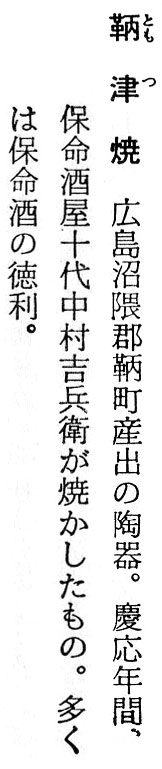 鞆津焼　広島沼隈郡鞆町産出の陶器。慶応年間、
保命酒屋十代中村吉兵衛が焼かしたもの。多く
は保命酒の徳利。